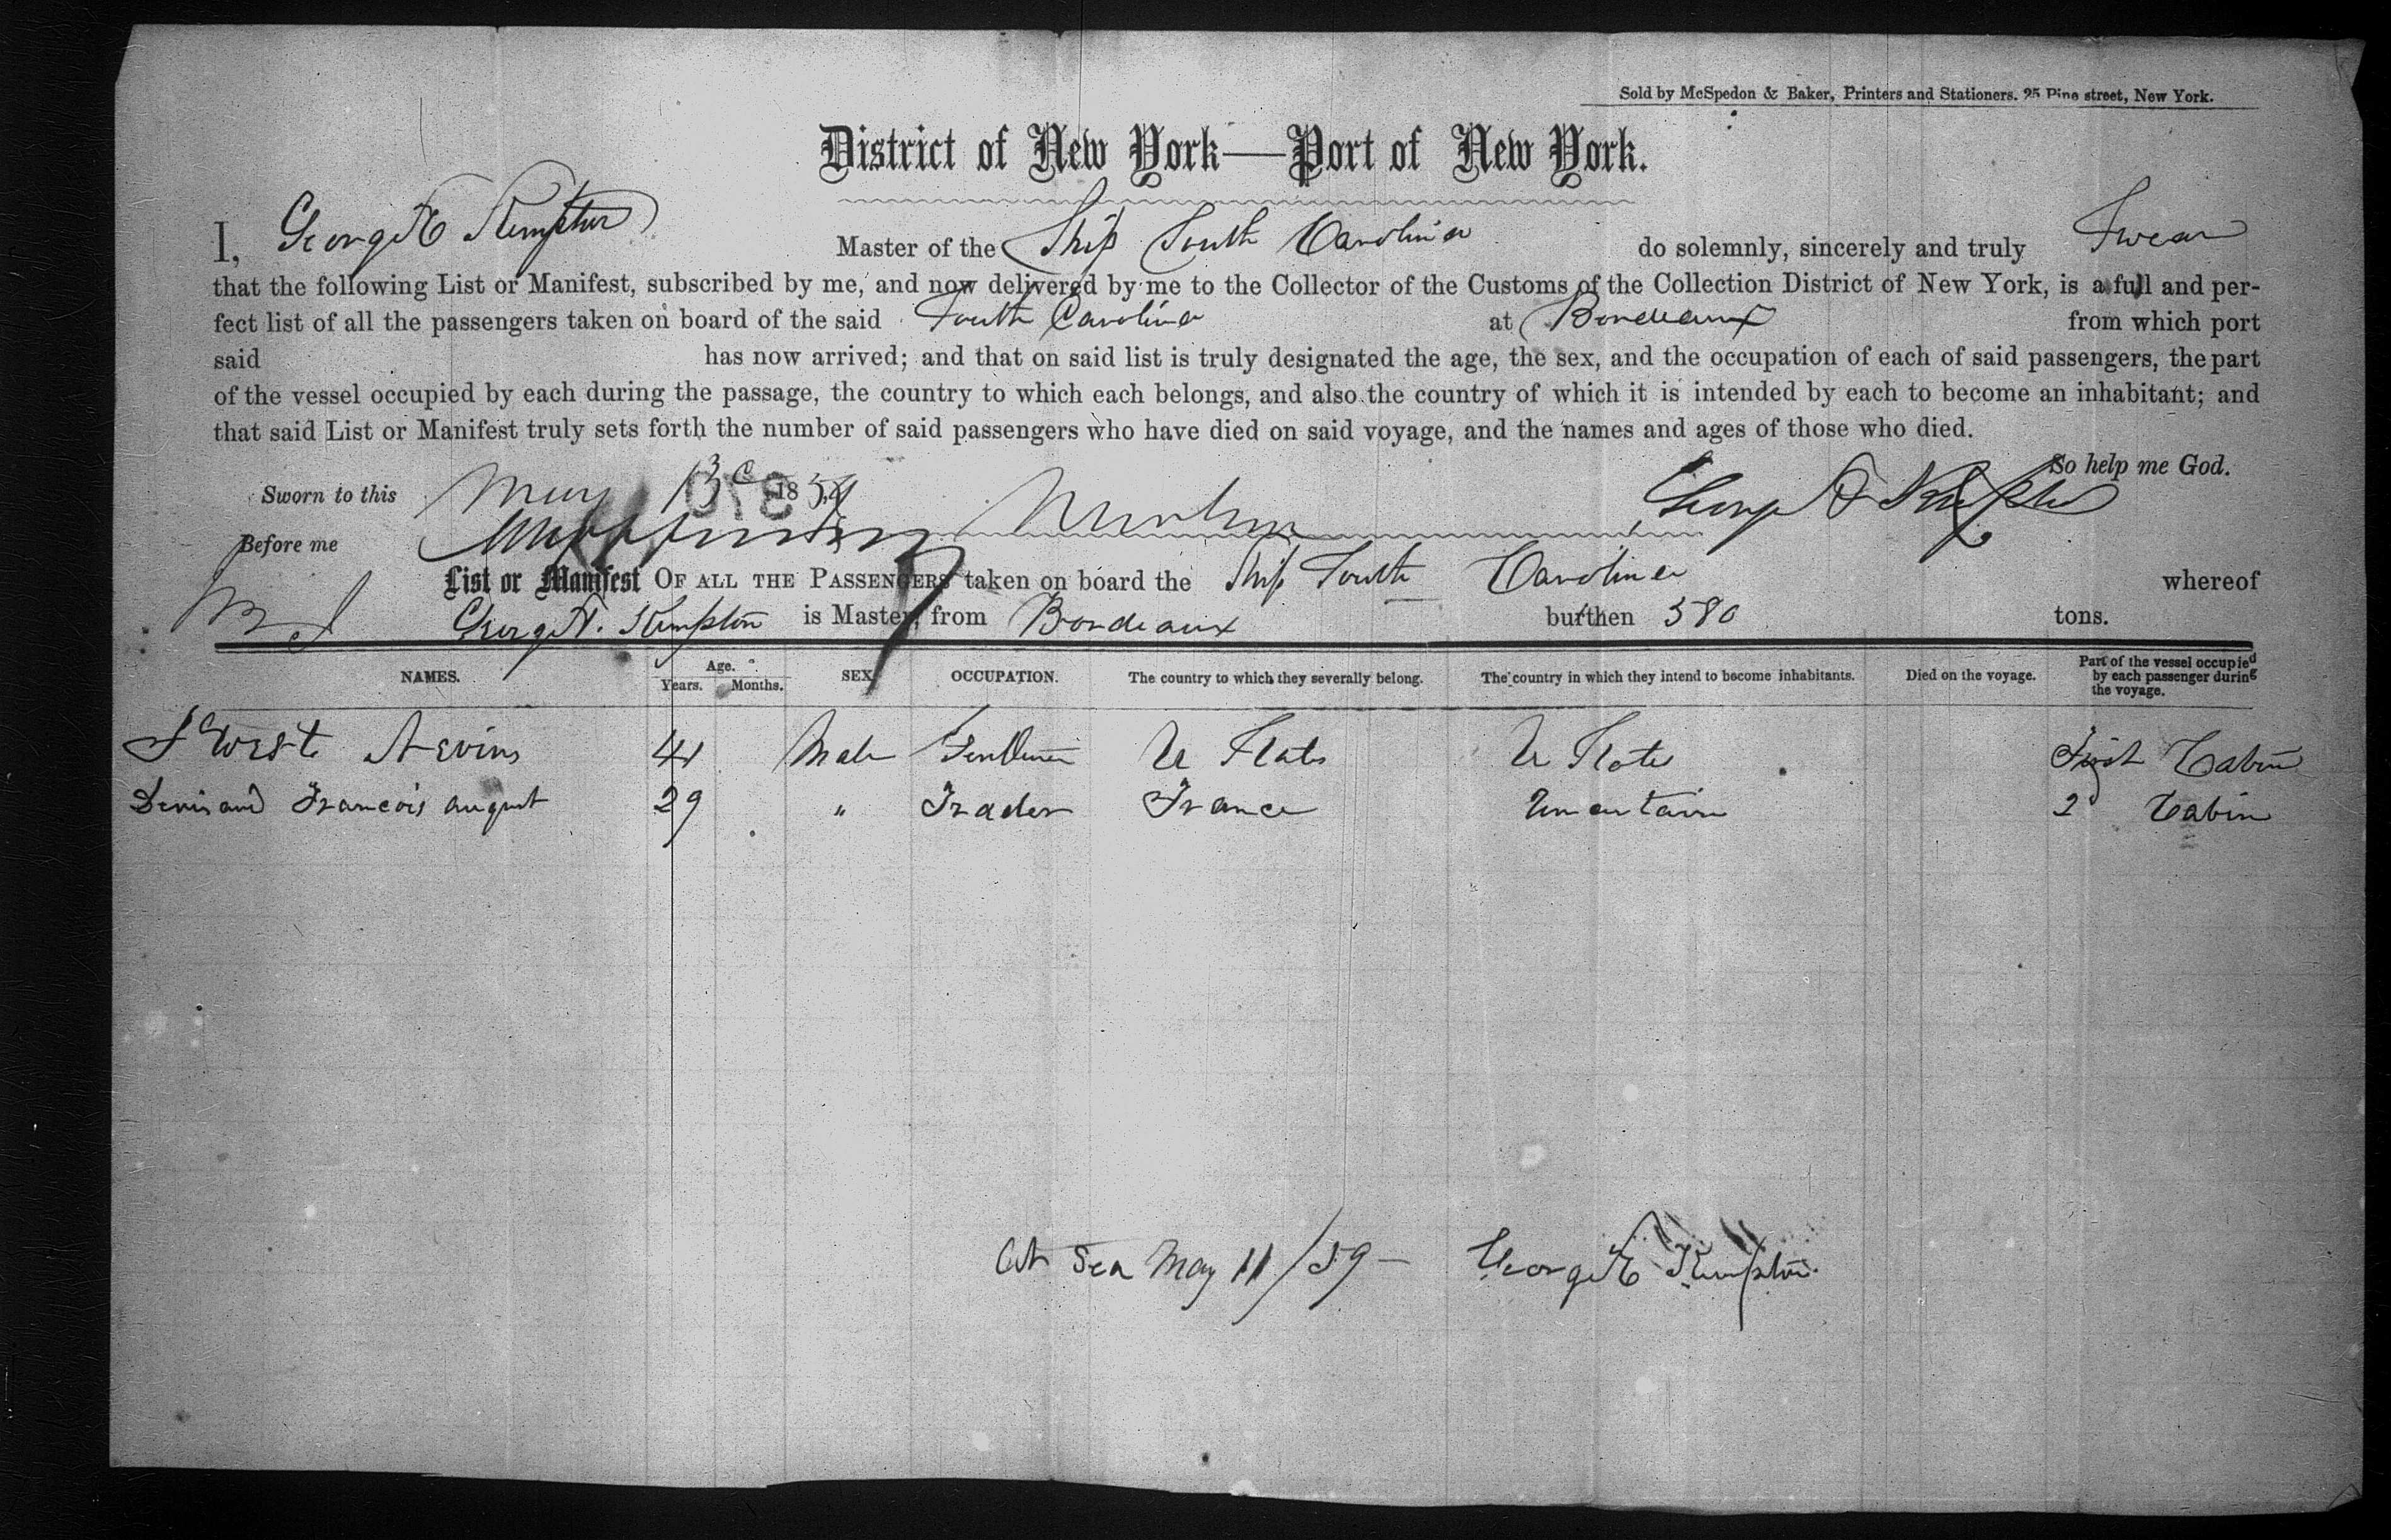 Sold by McSpedon & Baker, Printers and Stationers. 25 Pine street, New York.
District of New York—Port of New York.
I, George Kempton Master of the Ship South Carolina do solemnly, sincerely and truly Swear
that the following List or Manifest, subscribed by me, and now delivered by me to the Collector of the Customs of the Collection District of New York, is a full and per-
fect list of all the passengers taken on board of the said South Carolina at Bordeaux from which port
said has now arrived; and that on said list is truly designated the age, the sex, and the occupation of each of said passengers, the part
of the vessel occupied by each during the passage, the country to which each belongs, and also the country of which it is intended by each to become an inhabitant; and
that said List or Manifest truly sets forth the number of said passengers who have died on said voyage, and the names and ages of those who died.
So help me God.
Sworn to this May 13 1859
Before me
List or Manifest OF ALL THE PASSENGERS taken on board the Ship South Carolina whereof
George Kempton is Master, from Bordeaux burthen 580 tons.
NAMES. Age. Years. Months. SEX. OCCUPATION. The country to which they severally belong. The country in which they intend to become inhabitants. Died on the voyage. Part of the vessel occupied by each passenger during the voyage.
West Nevins 41 Male Gentleman U States U State First Cabin
Francois August 29 " Trader France Uncertain 2d Cabin
At Sea May 11/59 — George Kempton.